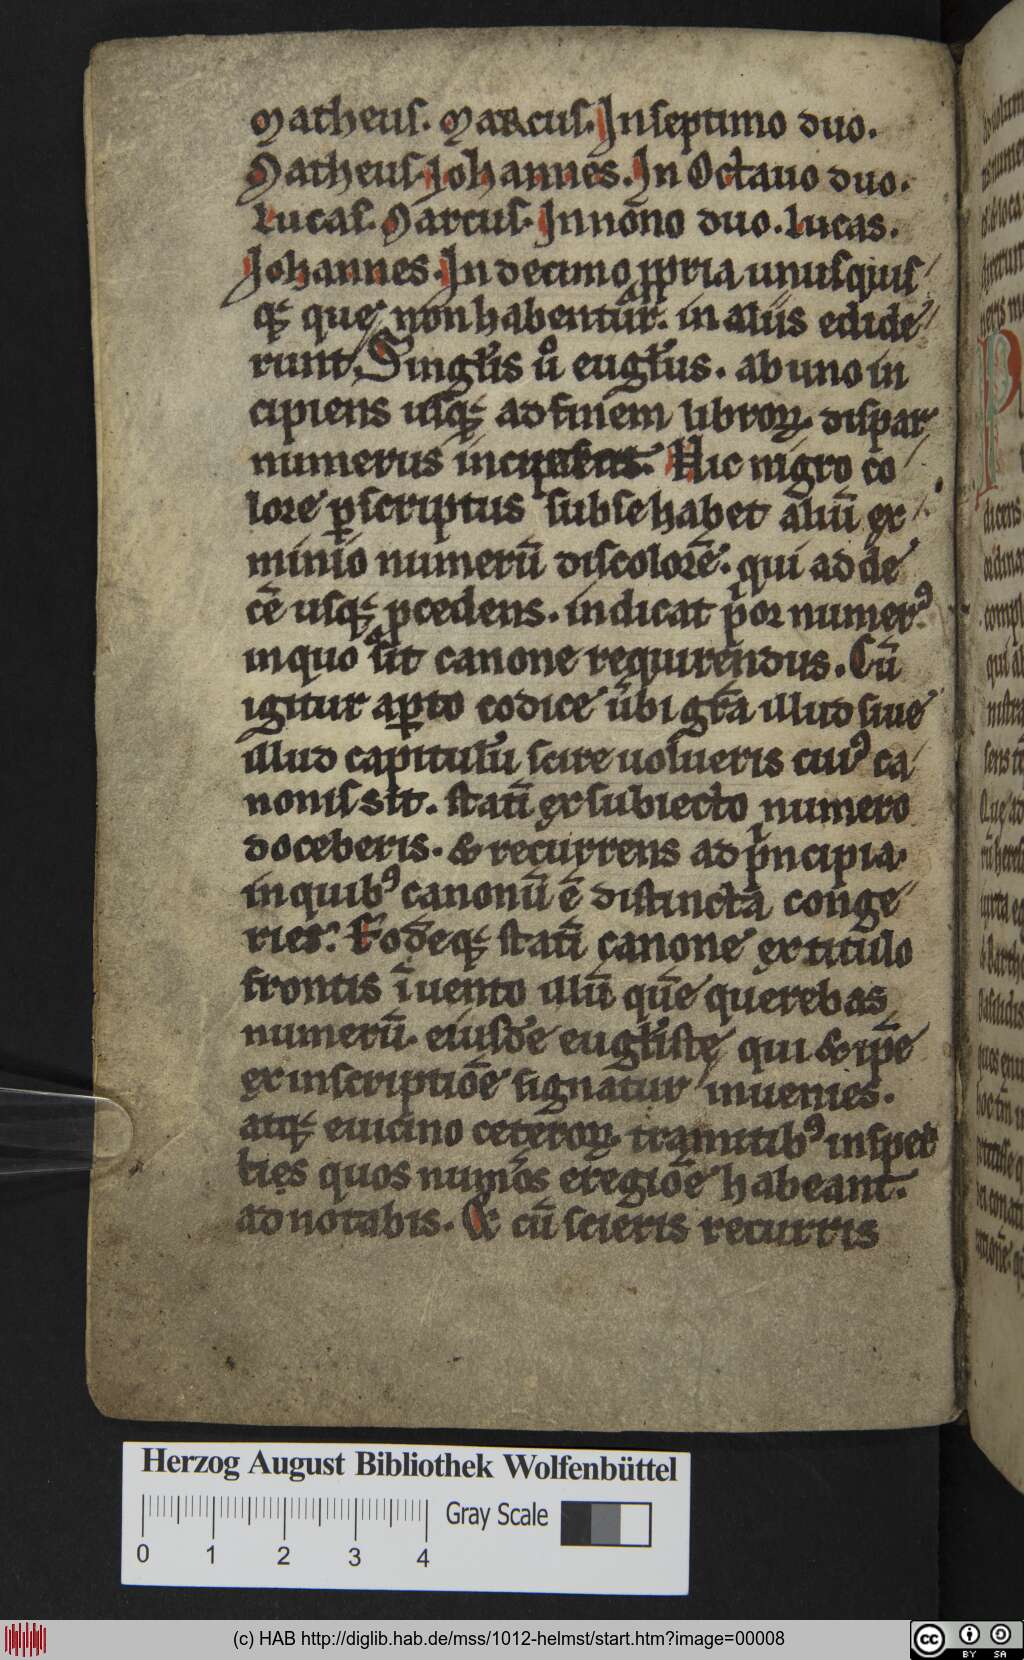 Matheus. Marcus. In septimo duo.
Matheus Iohannes. In Octauo duo.
Lucas. Marcus. In nono duo. Lucas.
Iohannes. In decimo ꝓpria unusquis
qꝫ que non habentur. in aliis edide
runt. Singlis u̾o euglius. ab uno in
cipiens usqꝫ ad finem libroꝝ. dispar
numerus
Hic nigro co
lore ꝑscriptus sub se habet aliū ex
minio numerū discolorē. qui ad de
cē usqꝫ p̾cedens. indicat p̾or numerꝰ
in quo sit canone requirendus. Cū
igitur aꝑto codice ubi gr̄a illud siue
illud capitulū scire uolueris cuiꝰ ca
nonis sit. statī ex subiecto numero
doceberis. & recurrens ad p̾ncipia.
in quibꝰ canonū ē distincta conge
ries. Eodēqꝫ statī canone ex titulo
frontis īuento illū quē querebas
numerū. eiusdē eugliste qui & ipē
ex inscriptiōe signatur inuenies.
atqꝫ e uicino ceteroꝝ tramitibꝰ inspec
ties quos num̾os e regiōe habeant.
adnotabis. Et cū scieris recurris
Herzog August Bibliothek Wolfenbüttel
Gray Scale
0 1 2 3 4
(c) HAB http://diglib.hab.de/mss/1012-helmst/start.htm?image=00008
cc BY SA